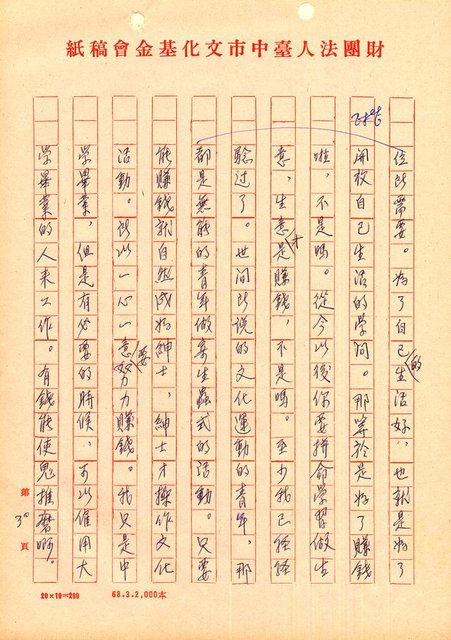 財團法人臺中市文化基金會稿紙
位所需要。為了自己的生活好，也就是為了
開拓自己生活的學問。那等於是為了賺錢
啦，不是嗎。從今以後你要拼命學習做生
意，生意才是賺錢，不是嗎。至少我已經經
驗過了。世間所說的文化運動的青年，那
都是無能的青年做寄生蟲式的活動。只要
能賺錢就自然成為紳士，紳士才操作文化
活動。所以一心一意要努力賺錢。我只是中
學畢業，但是有必要的時候，可以僱用大
學畢業的人來工作。有錢能使鬼推磨啊。
第30頁
20×10=200
68.3.2,000本